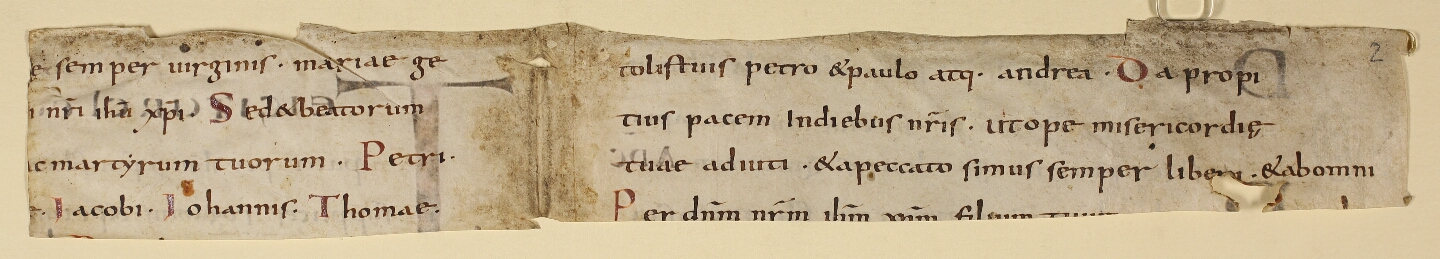 e semper uirginis · mariae ge
i nr̄i ihū xp̄i · Sed & beatorum
ac martyrum tuorum · Petri ·
Iacobi · Iohannis · Thomae ·
tolis tuis petro & paulo atq· andrea · Da propi
tius pacem In diebus nr̄is · ut ope misericordię
tuae adiuti · & a peccato simus semper liberi · & ab omni
Per dn̄m nr̄m ihm̄ xpm̄ filium tuum
2